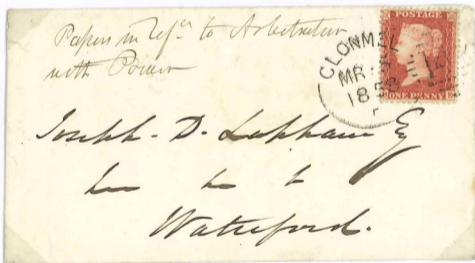 Papers in Refce to Arbitration
with Power
POSTAGE
CLONMEL
MR
185
ONE PENNY
Joseph. D. Lapham Esq
Waterford.